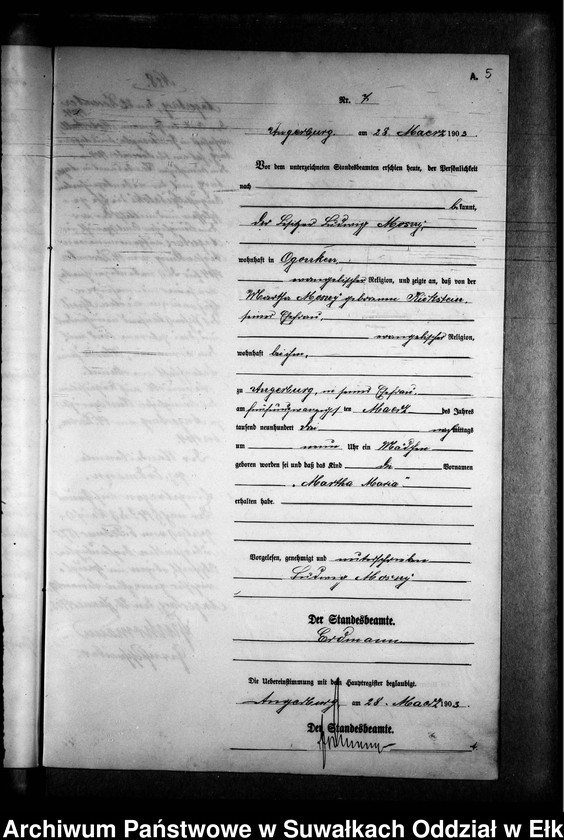 A. 5
Nr. 7
Angerburg, am 28 Maerz 1903
Vor dem unterzeichneten Standesbeamten erschien heute, der Persönlichkeit
nach
bekannt,
der Besitzer Ludwig Moszy,
wohnhaft in Ogonken,
evangelischer Religion, und zeigte an, daß von der
Martha Moszy geborenen
seiner Ehefrau,
evangelischer Religion,
wohnhaft bei ihm,
zu Angerburg, in seiner Ehefrau,
am fünfundzwanzigsten ten Maerz des Jahres
tausend neunhundert drei nachmittags
um neun Uhr ein Mädchen
geboren worden sei und daß das Kind die Vornamen
„Martha Maria“
erhalten habe.
Vorgelesen, genehmigt und unterschrieben
Ludwig Moszy
Der Standesbeamte.
Erdmann
Die Uebereinstimmung mit dem Hauptregister beglaubigt.
Angerburg, am 28. Maerz 1903.
Der Standesbeamte.
Erdmann
Archiwum Państwowe w Suwałkach Oddział w Ełk